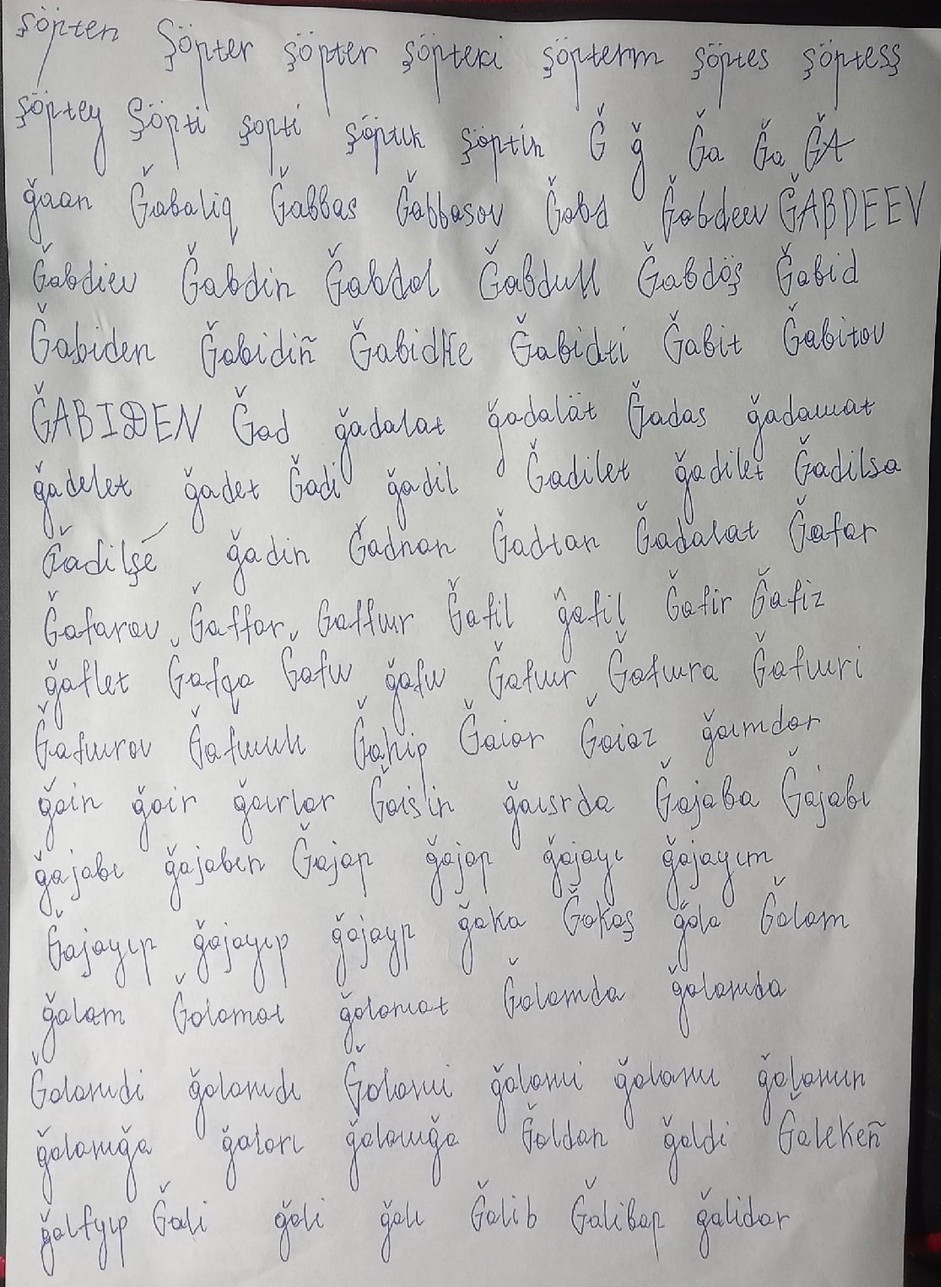 şöpten Şöpter şöpter şöpteri şöpterin şöptes şöptesş
şöptey Şöpti şopti şöptık şöptin Ğ ğ Ğa Ğa ĞA
ğaan Ğabaliq Ğabbas Ğabbasov Ğabd Ğabdeev ĞABDEEV
Ğabdiev Ğabdin Ğabdol Ğabdull Ğabdöş Ğabid
Ğabiden Ğabidiñ Ğabidke Ğabidti Ğabit Ğabitov
ĞABIDEN Ğad ğadalat ğadalät Ğadas ğadauat
ğadelet ğadet Ğadi ğadil Ğadilet ğadilet Ğadilsa
Ğadilşé ğadin Ğadnan Ğadtan Ğadalat Ğafar
Ğafarov Ğaffar Gaffur Ğafil ĝafil Ğafir Ğafiz
ğaflet Ğafqa Ğafu ğafu Ğafur Ğafura Ğafuri
Ğafurov Ğafuuh Ğahip Ğaiar Ğaiaz ğaımdar
ğain ğair ğaırlar Ğaislin ğaısrda Ğajaba Ğajabı
ğajabı ğajaben Ğajap ğajap ğajayı ğajayım
Ğajayıp ğajayıp ğajayp ğaka Ğakaş ğala Ğalam
ğalam Ğalamat ğalamat Ğalamda ğalamda
Ğalamdi ğalamdı Ğalami ğalami ğalamı ğalamın
ğalamğa ğaları ğalamğa Ğaldan ğaldi Ğalekeñ
ğalfyıp Ğali ğali ğalı Ğalib Ğalibap ğalidar